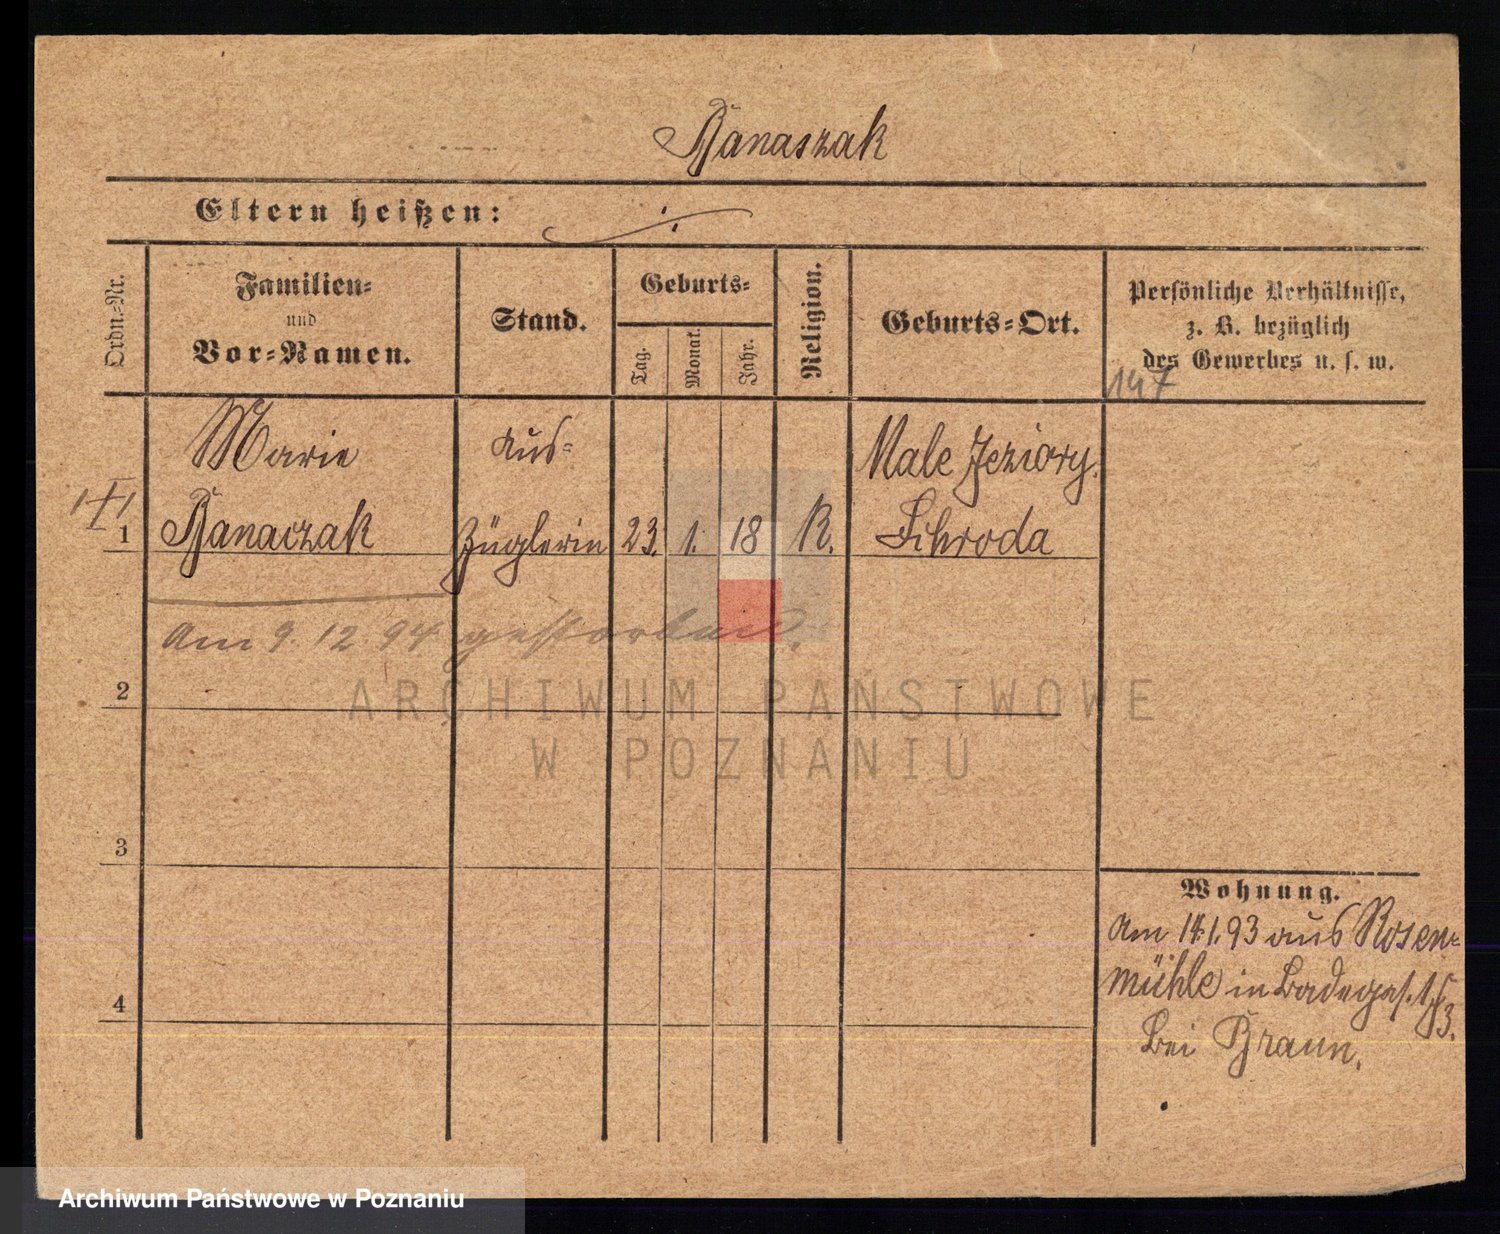 Banaszak
Eltern heißen: ./.
Ordn.-Nr.
Familien-
und
Vor-Namen.
Stand.
Geburts-
Tag.
Monat.
Jahr.
Religion.
Geburts-Ort.
Persönliche Verhältnisse,
z. B. bezüglich
des Gewerbes u. s. w.
147
Marie Aus- Male Jeziory.
1 Banaczak Züglerin 23. 1. 18 R. Schroda
Am 9. 12. 94 gestorben.
2
3
4
Wohnung.
Am 14.1.93 aus Rosen-
mühle in Badegas.
bei Braun.
ARCHIWUM PAŃSTWOWE
W POZNANIU
Archiwum Państwowe w Poznaniu